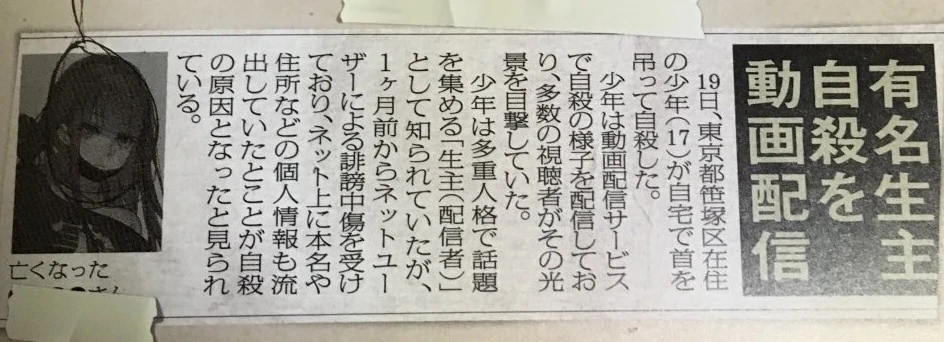 有名生主
自殺を
動画配信
19日、東京都笹塚区在住
の少年（17）が自宅で首を
吊って自殺した。
少年は動画配信サービス
で自殺の様子を配信してお
り、多数の視聴者がその光
景を目撃していた。
少年は多重人格で話題
を集める「生主（配信者）」
として知られていたが、
1ヶ月前からネットユー
ザーによる誹謗中傷を受け
ており、ネット上に本名や
住所などの個人情報も流
出していたとことが自殺
の原因となったと見られ
ている。
亡くなった
さん